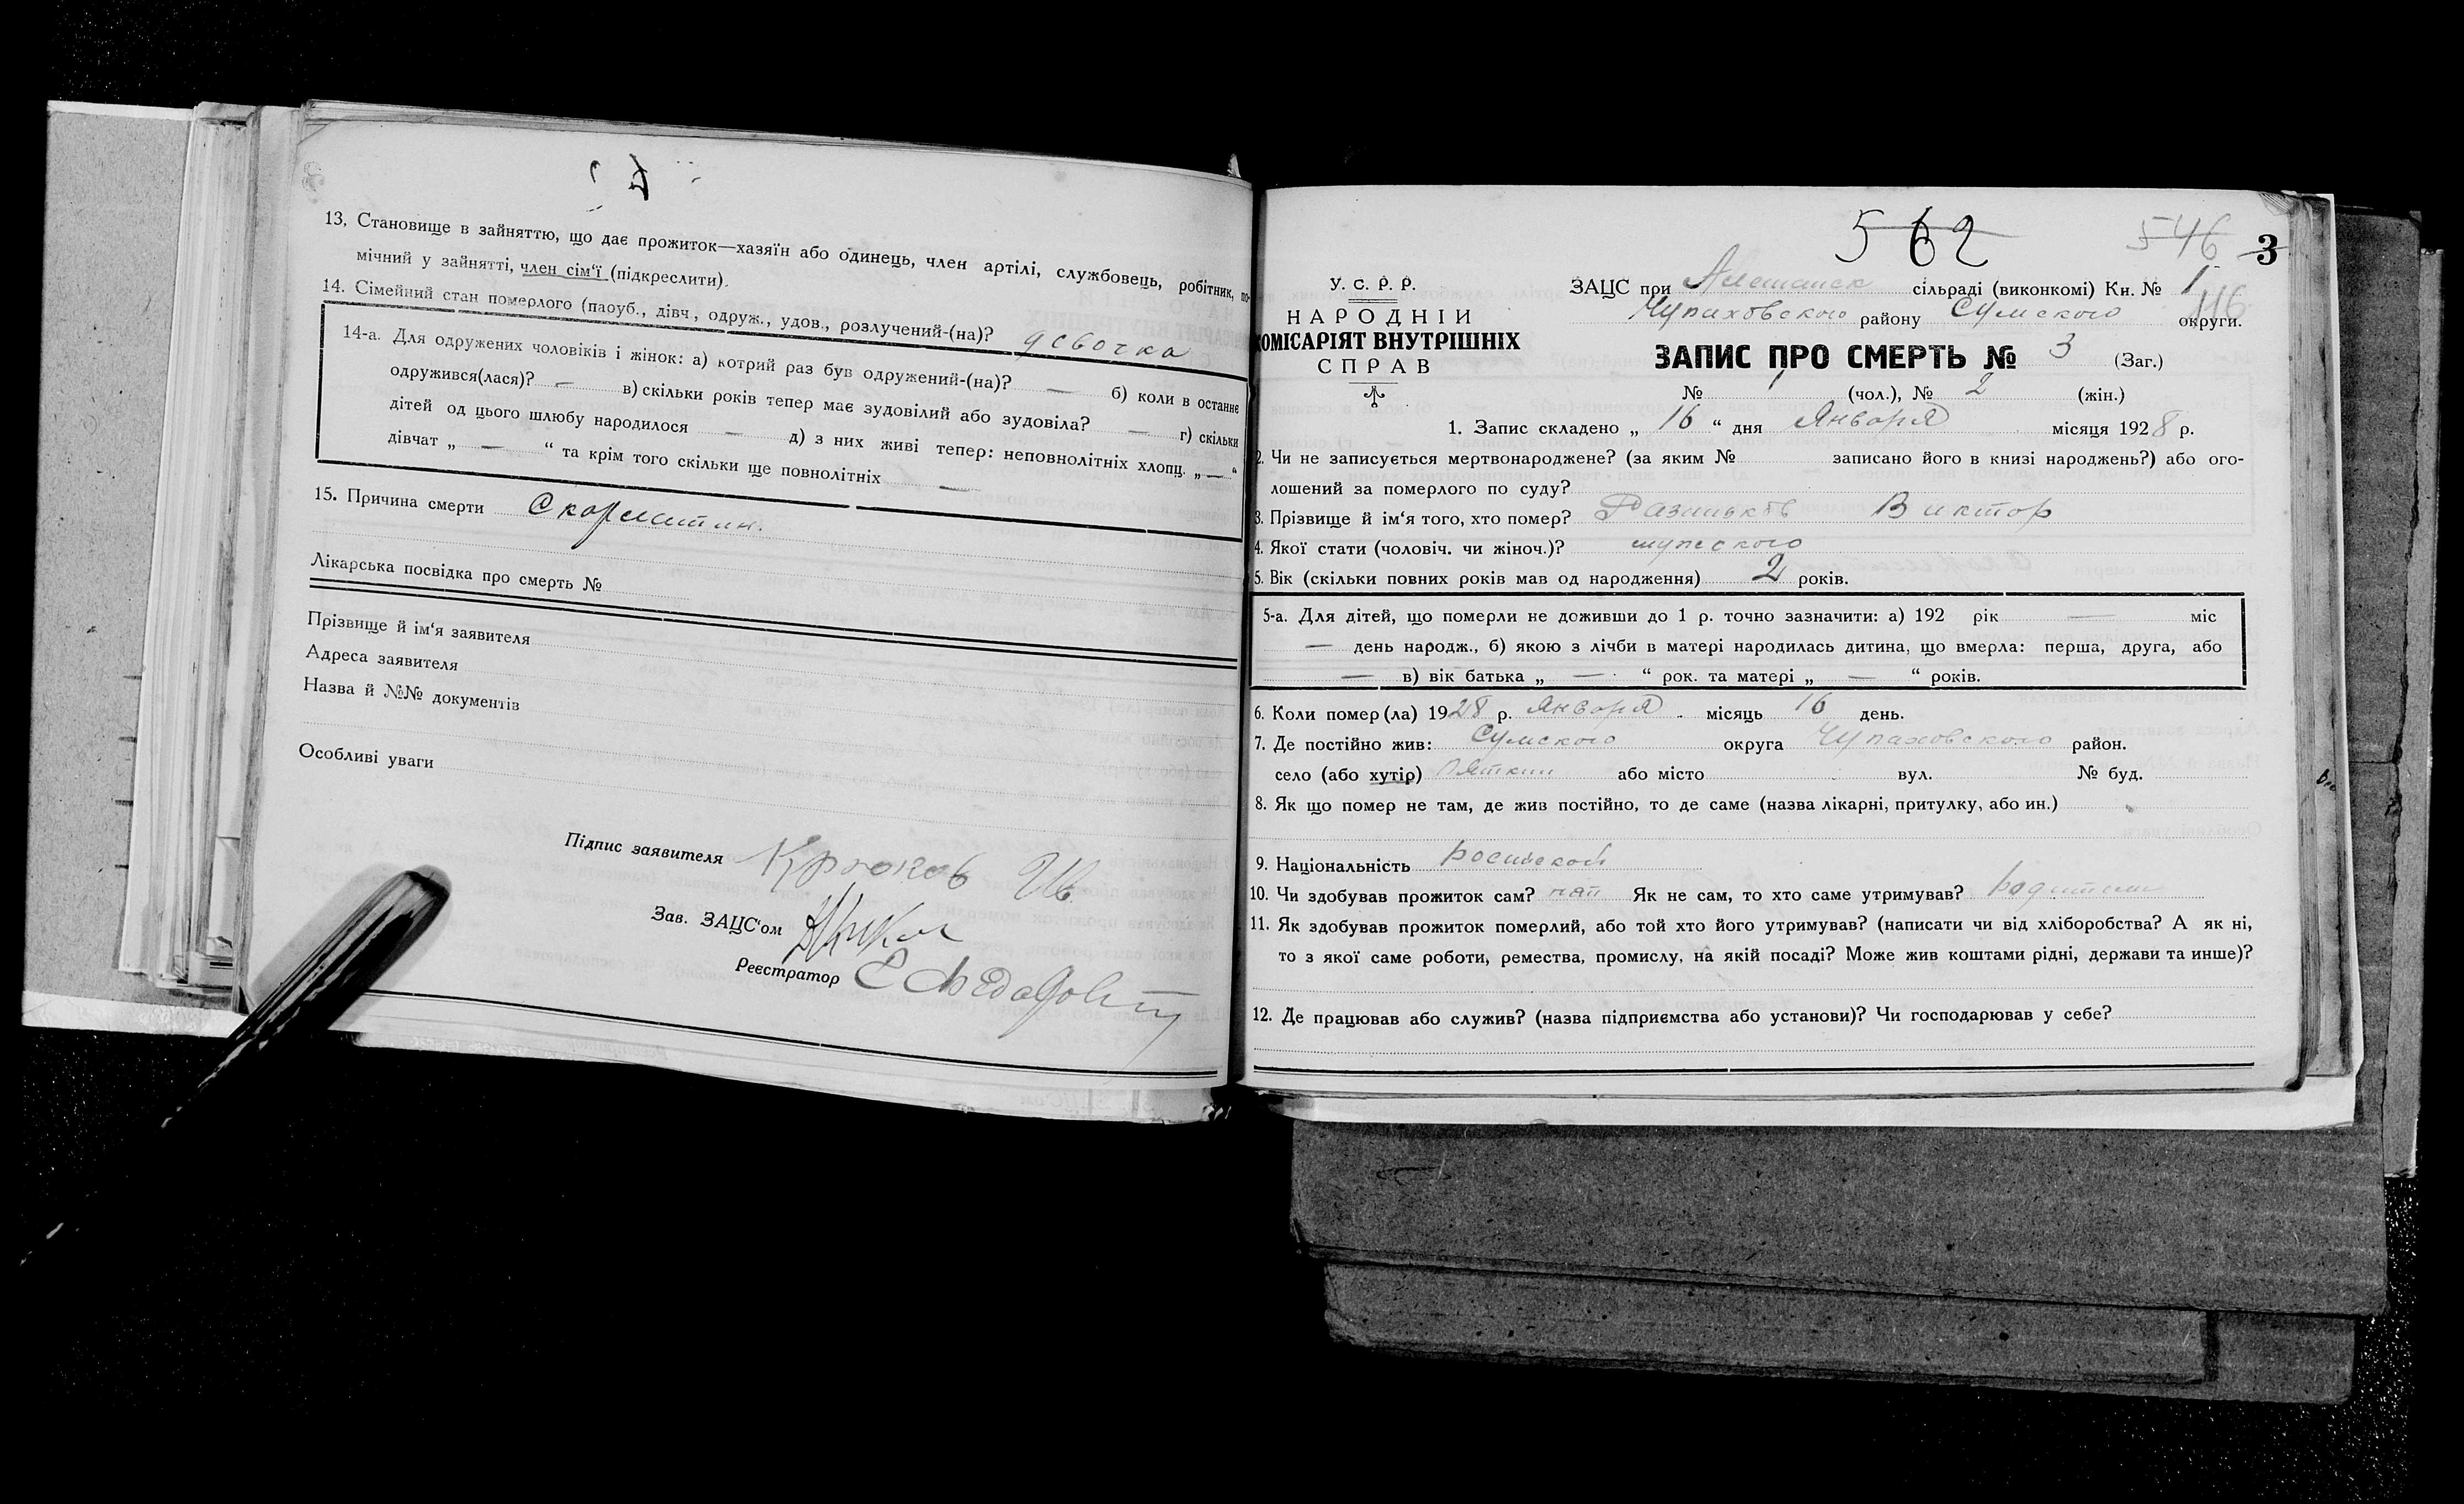 13. Становище в зайняттю, що дає прожиток—хазяїн або одинець, член артілі, службовець, робітник, по-
мічний у зайнятті, член сім'ї (підкреслити).
14. Сімейний стан померлого (пароуб., дівч., одруж., удов., розлучений-(на)? девочка
14-а. Для одружених чоловіків і жінок: а) котрий раз був одружений-(на)? — б) коли в останнє
одружився(лася)? — в) скільки років тепер має зудовілий або зудовіла? — г) скільки
дітей од цього шлюбу народилося — д) з них живі тепер: неповнолітніх хлопц. „ — “
дівчат „ — “ та крім того скільки ще повнолітніх —
15. Причина смерти Скорлатин.
Лікарська посвідка про смерть №
Прізвище й ім'я заявителя
Адреса заявителя
Назва й №№ документів
Особливі уваги
Підпис заявителя Крюков
Зав. ЗАЦС'ом
Реєстратор
562 546 3
У. С. Р. Р.
НАРОДНІЙ
КОМІСАРІЯТ ВНУТРІШНІХ
СПРАВ
ЗАЦС при Алешанск сільраді (виконкомі) Кн. № 1
116
Чупаховского району Сумского округи.
ЗАПИС ПРО СМЕРТЬ № 3 (Заг.)
№ 1 (чол.), № 2 (жін.)
1. Запис складено „ 16 “ дня Января місяця 1928 р.
2. Чи не записується мертвонароджене? (за яким № записано його в книзі народжень?) або ого-
лошений за померлого по суду?
3. Прізвище й ім'я того, хто помер? Виктор
4. Якої стати (чоловіч. чи жіноч.)? мужского
5. Вік (скільки повних років мав од народження) 2 років.
5-а. Для дітей, що померли не доживши до 1 р. точно зазначити: а) 192 рік — міс
— день народж., б) якою з лічби в матері народилась дитина, що вмерла: перша, друга, або
— в) вік батька „ — “ рок. та матері „ — “ років.
6. Коли помер(ла) 1928 р. Января місяць 16 день.
7. Де постійно жив: Сумского округа Чупаховского район.
село (або хутір) Пяткин або місто вул. № буд.
8. Як що помер не там, де жив постійно, то де саме (назва лікарні, притулку, або ин.)
9. Національність
10. Чи здобував прожиток сам? Як не сам, то хто саме утримував? родители
11. Як здобував прожиток померлий, або той хто його утримував? (написати чи від хліборобства? А як ні,
то з якої саме роботи, ремества, промислу, на якій посаді? Може жив коштами рідні, держави та инше)?
12. Де працював або служив? (назва підприємства або установи)? Чи господарював у себе?